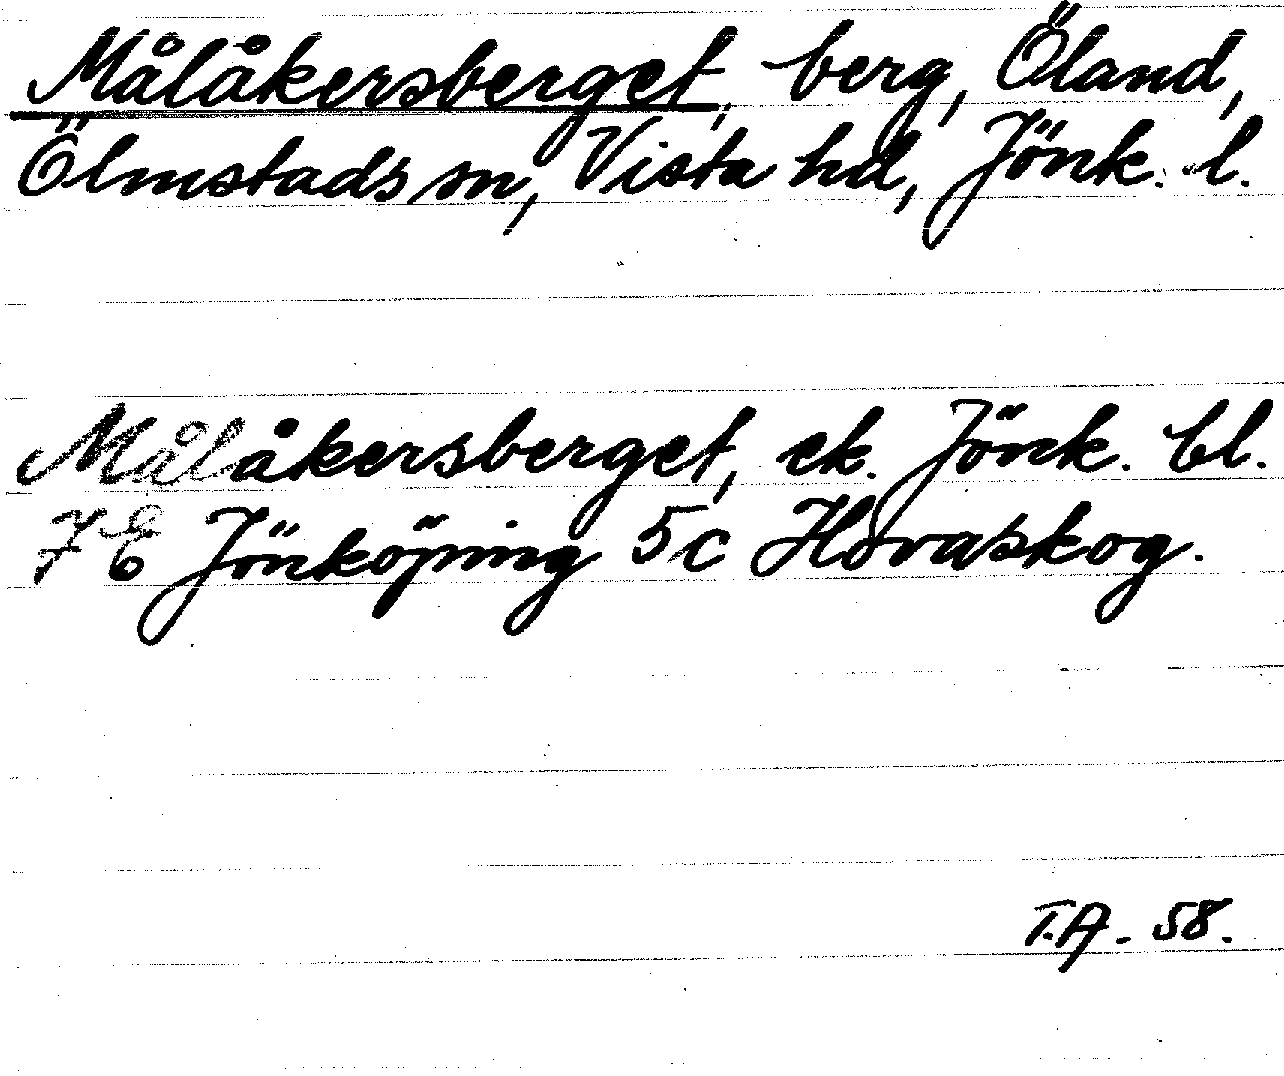 Målåkersberget, berg, Öland,
Ölmstads sn, Vista hd, Jönk. l.
Målåkersberget, ek. Jönk. bl.
7E Jönköping 5c Hovaskog.
T.A. 58.